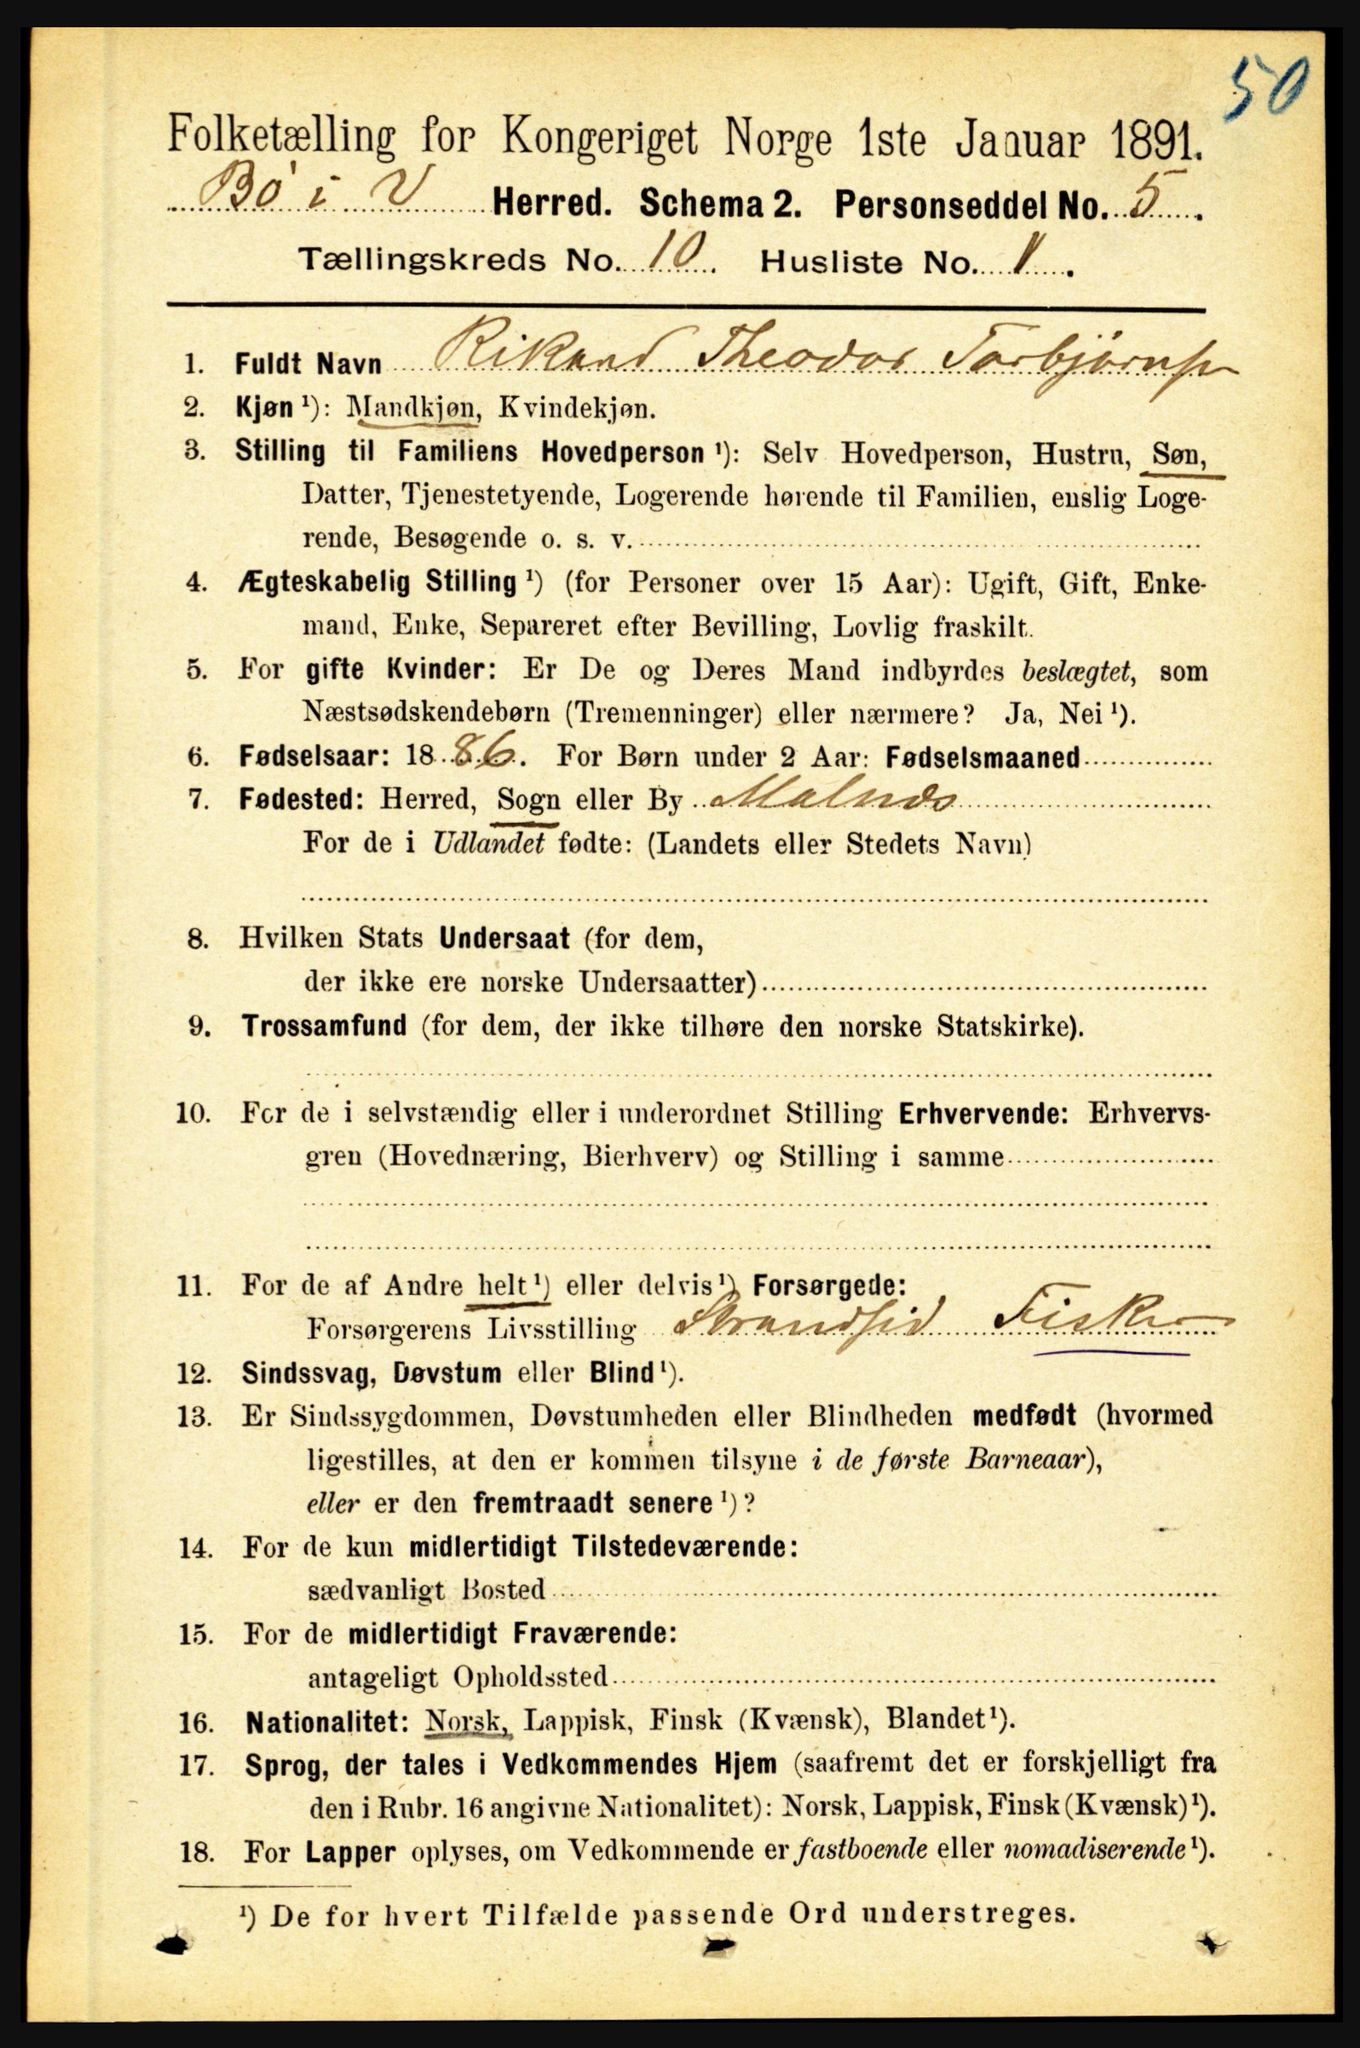 50
Folketælling for Kongeriget Norge 1ste Januar 1891.
Bö i V Herred. Schema 2. Personseddel No. 5.
Tællingskreds No. 10. Husliste No. 1.
1. Fuldt Navn Rikard Theodor Torbjörnsen
2. Kjøn ¹): Mandkjøn, Kvindekjøn.
3. Stilling til Familiens Hovedperson ¹): Selv Hovedperson, Hustru, Søn,
Datter, Tjenestetyende, Logerende hørende til Familien, enslig Loge-
rende, Besøgende o. s. v.
4. Ægteskabelig Stilling ¹) (for Personer over 15 Aar): Ugift, Gift, Enke-
mand, Enke, Separeret efter Bevilling, Lovlig fraskilt.
5. For gifte Kvinder: Er De og Deres Mand indbyrdes beslægtet, som
Næstsødskendebørn (Tremenninger) eller nærmere? Ja, Nei ¹).
6. Fødselsaar: 1886. For Børn under 2 Aar: Fødselsmaaned
7. Fødested: Herred, Sogn eller By Malnæs
For de i Udlandet fødte: (Landets eller Stedets Navn)
8. Hvilken Stats Undersaat (for dem,
der ikke ere norske Undersaatter)
9. Trossamfund (for dem, der ikke tilhøre den norske Statskirke).
10. For de i selvstændig eller i underordnet Stilling Erhvervende: Erhvervs-
gren (Hovednæring, Bierhverv) og Stilling i samme
11. For de af Andre helt ¹) eller delvis ¹) Forsørgede:
Forsørgerens Livsstilling Strandsid Fisker
12. Sindssvag, Døvstum eller Blind ¹).
13. Er Sindssygdommen, Døvstumheden eller Blindheden medfødt (hvormed
ligestilles, at den er kommen tilsyne i de første Barneaar),
eller er den fremtraadt senere ¹)?
14. For de kun midlertidigt Tilstedeværende:
sædvanligt Bosted
15. For de midlertidigt Fraværende:
antageligt Opholdssted
16. Nationalitet: Norsk, Lappisk, Finsk (Kvænsk), Blandet ¹).
17. Sprog, der tales i Vedkommendes Hjem (saafremt det er forskjelligt fra
den i Rubr. 16 angivne Nationalitet): Norsk, Lappisk, Finsk (Kvænsk) ¹).
18. For Lapper oplyses, om Vedkommende er fastboende eller nomadiserende ¹).
¹) De for hvert Tilfælde passende Ord understreges.